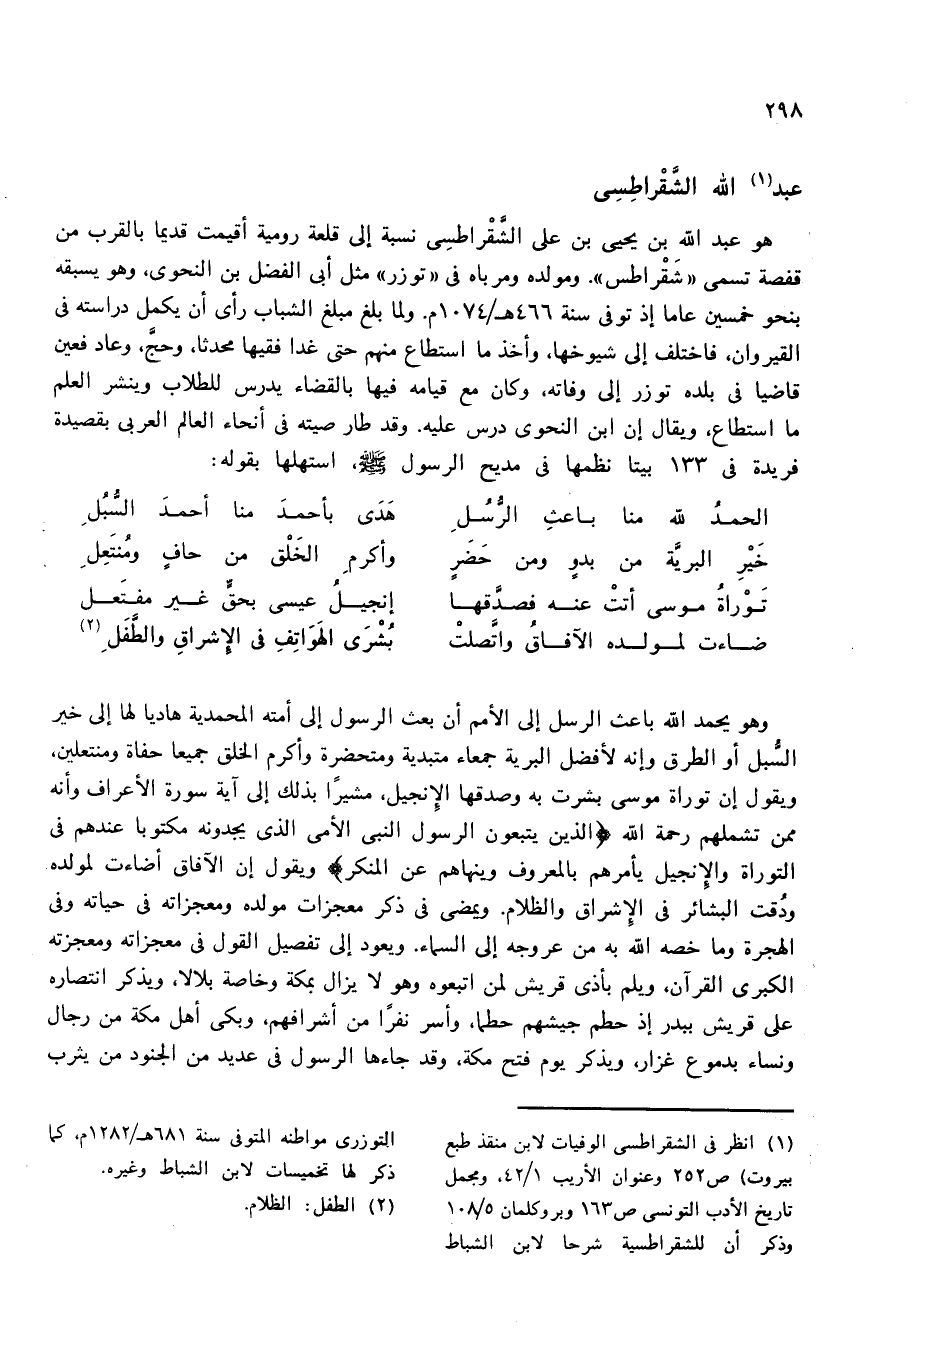 ٢٩٨
عبد(١) الله الشَّقْراطِسِى
هو عبد الله بن يحيى بن على الشَّقْراطسِى نسبة إلى قلعة رومية أقيمت قديما بالقرب من
قفصة تسمى «شَقْراطس». ومولده ومرباه فى «توزر» مثل أبى الفضل بن النحوى، وهو يسبقه
بنحو خمسين عاما إذ توفى سنة ٤٦٦هـ/١٠٧٤م. ولما بلغ مبلغ الشباب رأى أن يكمل دراسته فى
القيروان، فاختلف إلى شيوخها، وأخذ ما استطاع منهم حتى غدا فقيها محدثا، وحجَّ، وعاد فعين
قاضيا فى بلده توزر إلى وفاته، وكان مع قيامه فيها بالقضاء يدرس للطلاب وينشر العلم
ما استطاع، ويقال إن ابن النحوى درس عليه. وقد طار صيته فى أنحاء العالم العربى بقصيدة
فريدة فى ١٣٣ بيتا نظمها فى مديح الرسول ﷺ، استهلها بقوله:
الحمدُ لله منا باعثِ الرُّسُلِ هَدَى بأحمدَ منا أحمدَ السُّبُلِ
خَيْرِ البريَّة من بدوٍ ومن حَضَرٍ وأكرمِ الخَلْق من حافٍ ومُنتَعِلِ
تَوْراةُ موسى أتتْ عنه فصدَّقها إنجيلُ عيسى بحقٍّ غير مفتَعل
ضاءت لمولده الآفاقُ واتَّصلتْ بُشْرَى الهَوَاتِفِ فى الإشراقِ والطَّفَلِ(٢)
وهو يحمد الله باعث الرسل إلى الأمم أن بعث الرسول إلى أمته المحمدية هاديا لها إلى خير
السُّبل أو الطرق وإنه لأفضل البرية جمعاء متبدية ومتحضرة وأكرم الخلق جميعا حفاة ومنتعلين،
ويقول إن توراة موسى بشرت به وصدقها الإنجيل، مشيرًا بذلك إلى آية سورة الأعراف وأنه
ممن تشملهم رحمة الله ﴿الذين يتبعون الرسول النبى الأمى الذى يجدونه مكتوبا عندهم فى
التوراة والإنجيل يأمرهم بالمعروف وينهاهم عن المنكر﴾ ويقول إن الآفاق أضاءت لمولده
ودُقت البشائر فى الإشراق والظلام. ويمضى فى ذكر معجزات مولده ومعجزاته فى حياته وفى
الهجرة وما خصه الله به من عروجه إلى السماء. ويعود إلى تفصيل القول فى معجزاته ومعجزته
الكبرى القرآن، ويلم بأذى قريش لمن اتبعوه وهو لا يزال بمكة وخاصة بلالا، ويذكر انتصاره
على قريش ببدر إذ حطم جيشهم حطما، وأسر نفرًا من أشرافهم، وبكى أهل مكة من رجال
ونساء بدموع غزار، ويذكر يوم فتح مكة، وقد جاءها الرسول فى عديد من الجنود من يثرب
(١) انظر فى الشقراطسى الوفيات لابن منقذ طبع
بيروت) ص٢٥٢ وعنوان الأريب ٤٢/١، ومجمل
تاريخ الأدب التونسى ص١٦٣ وبروكلمان ١٠٨/٥
وذكر أن للشقراطسية شرحا لابن الشباط
التوزرى مواطنه المتوفى سنة ٦٨١هـ/١٢٨٢م، كما
ذكر لها تخميسات لابن الشباط وغيره.
(٢) الطفل: الظلام.